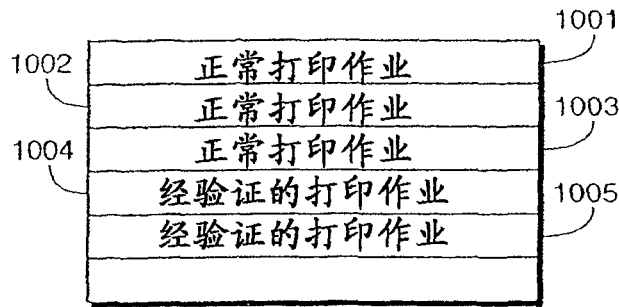 1001
正常打印作业
1002
正常打印作业
1003
正常打印作业
1004
经验证的打印作业
1005
经验证的打印作业